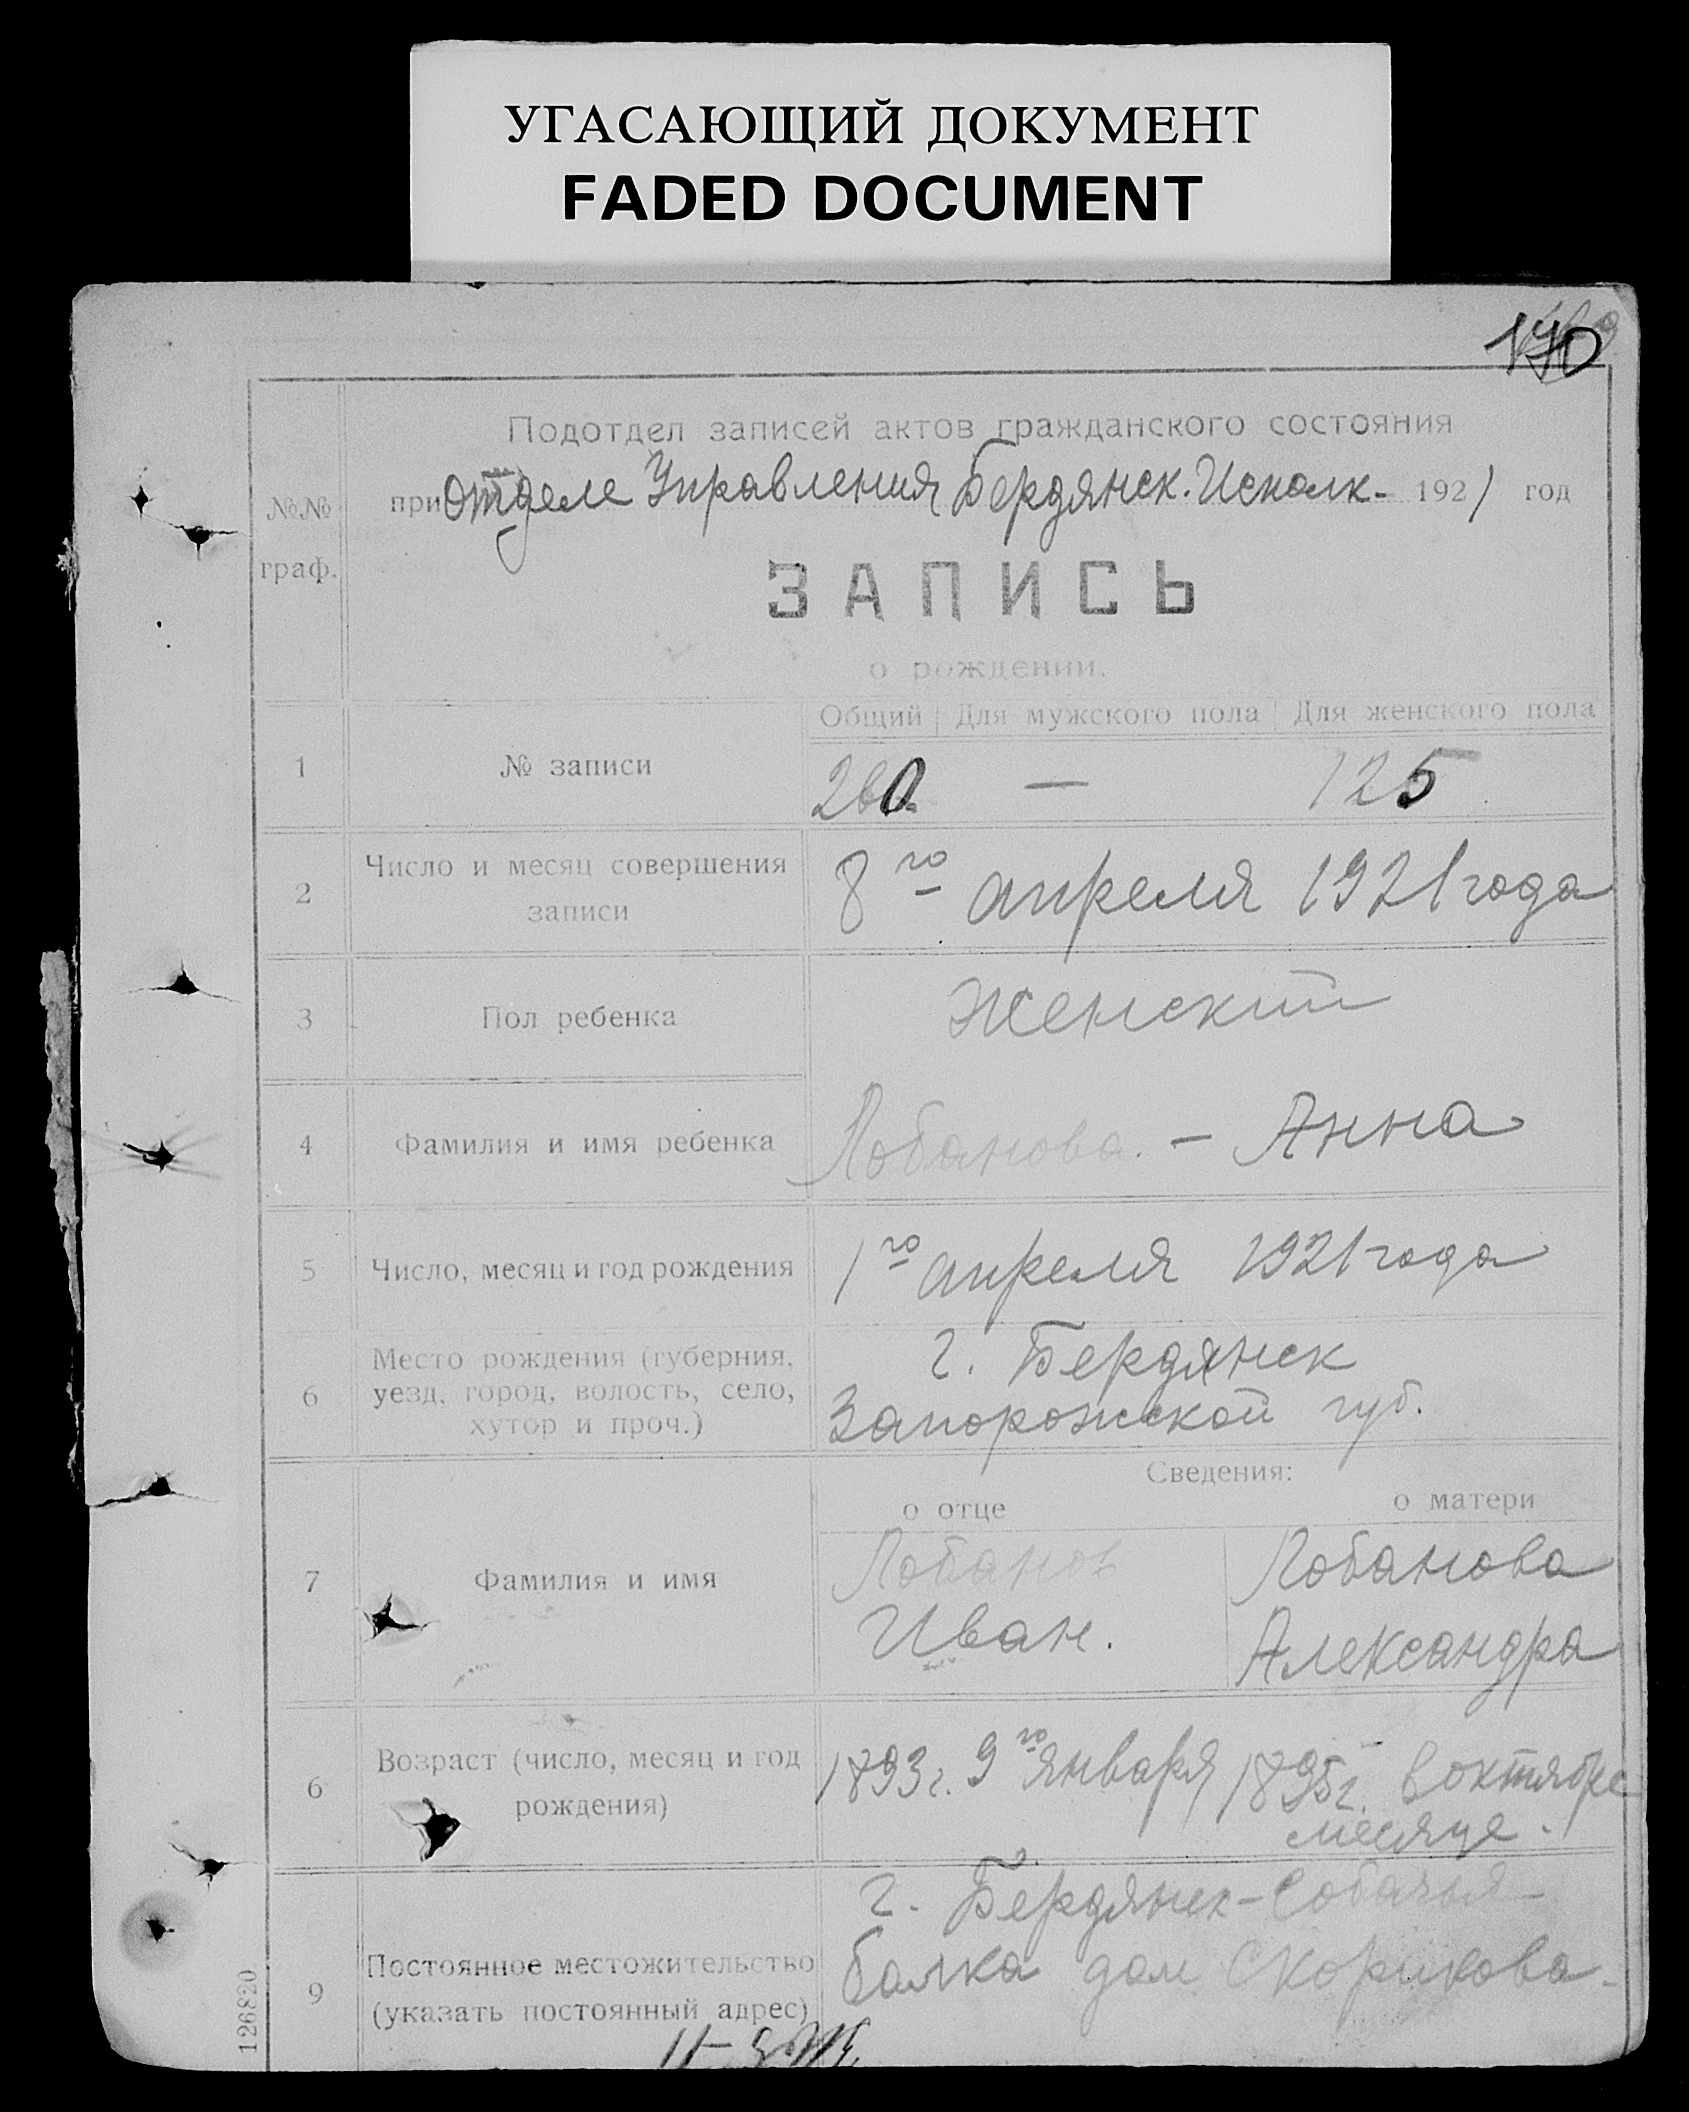 УГАСАЮЩИЙ ДОКУМЕНТ
FADED DOCUMENT
170
Подотдел записей актов гражданского состояния
№№
граф.
при Отделе Управления Бердянск. Исполк. 1921 год
ЗАПИСЬ
о рождении.
Общий Для мужского пола Для женского пола
1 № записи 260 — 125
2 Число и месяц совершения
записи
8го апреля 1921 года
3 Пол ребенка Женский
4 Фамилия и имя ребенка Лобанова. – Анна
5 Число, месяц и год рождения 1го апреля 1921 года
6 Место рождения (губерния,
уезд, город, волость, село,
хутор и проч.)
г. Бердянск
Запорожской губ.
Сведения:
о отце о матери
7 Фамилия и имя
Лобанов Лобанова
Иван. Александра
6 Возраст (число, месяц и год
рождения)
1893г. 9го января 1895г. в октябре
месяце.
9 Постоянное местожительство
(указать постоянный адрес)
г. Бердянск – Собачья
балка дом Скорикова
126820